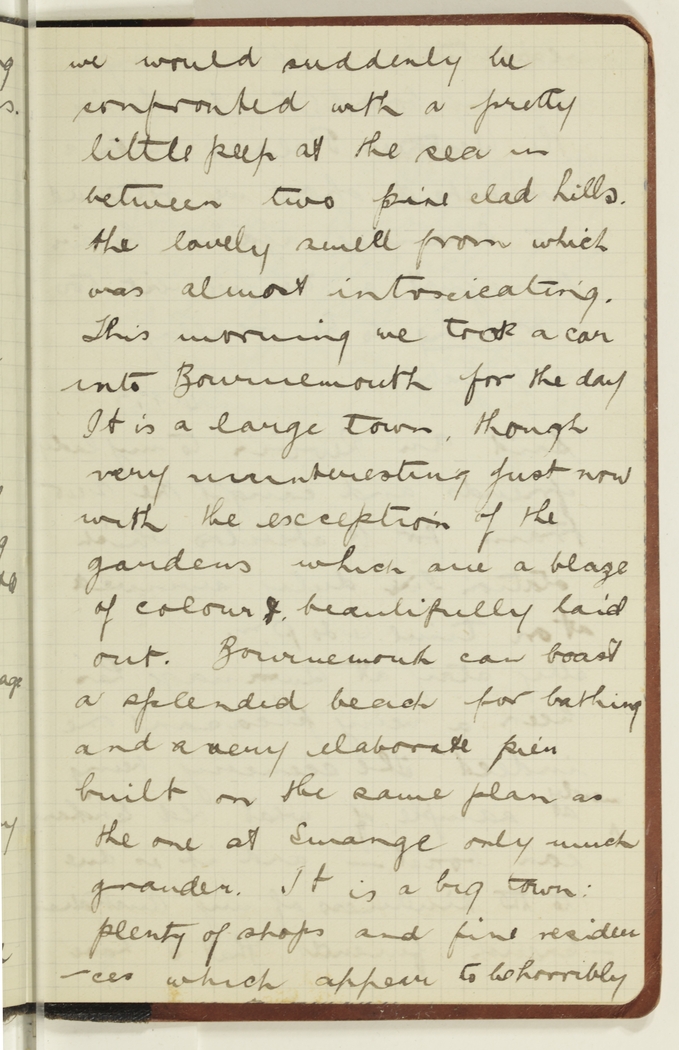 we would suddenly be
confronted with a pretty
little peep at the sea in
between two pine clad hills.
the lovely smell from which
was almost intoxicating.
This morning we took a car
into Bournemouth for the day
It is a large town, though
very uninteresting just now
with the exception of the
gardens which are a blaze
of colour &, beautifully laid
out. Bournemouth can boast
a splended beach for bathing
and a very elaborate pier
built on the same plan as
the one at Swanage only much
grander. It is a big town:
plenty of shops and fine residen
-ces which appear to be horribly